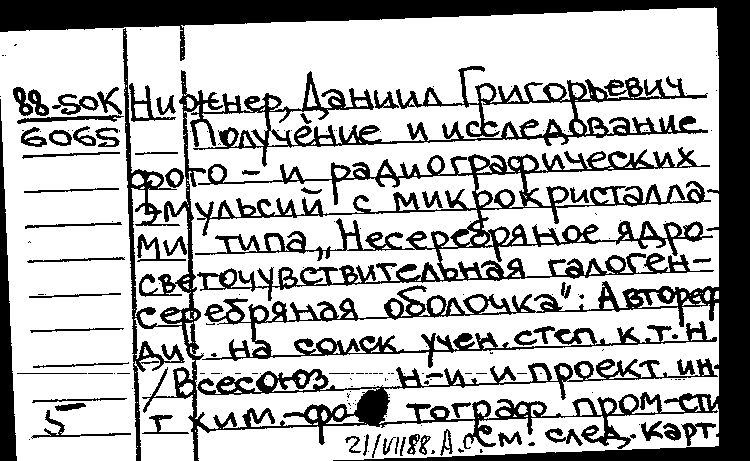 88-50К Нижнер, Даниил Григорьевич
6065 Получение и исследование
фото- и радиографических
эмульсий с микрокристалла-
ми типа „Несеребряное ядро-
светочувствительная галоген-
серебряная оболочка": Автореф
дис. на соиск. учен. степ. к.т.н.
/Всесоюз. н.-и. и проект. ин-
5 т хим.-фо тограф. пром-сти
21/VII88. А.О. См. след. карт.